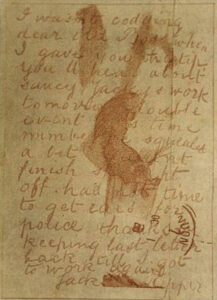 I wasnt codding
dear old Boss when
I gave you the tip
you'll hear about
saucy Jackys work
tomorrow double
event this time
number one squealed
a bit couldnt
finish straight
off. had not time
to get ears for
police thanks for
keeping last letter
back till I got
to work again.
Jack the Ripper